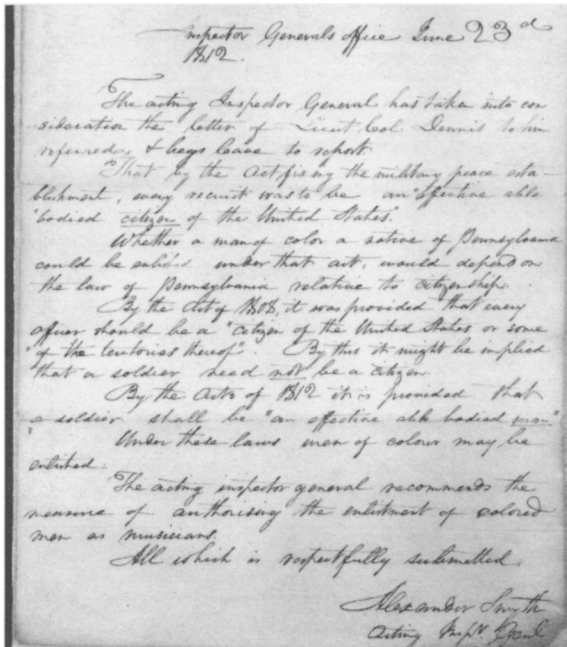 Inspector Generals office June 23d
1812.
The acting Inspector General has taken into con
sideration the letter of Lieut. Col. Dennis to him
referred, & begs leave to report
That by the Act fixing the military peace esta-
blishment, every recruit was to be an "effective able
"bodied citizen of the United States."
Whether a man of color a native of Pennsylvania
could be enlisted under that act, would depend on
the law of Pennsylvania relative to citizenship.
By the Act of 1808, it was provided that every
officer should be a "citizen of the United States or some
"of the territories thereof". By this it might be implied
that a soldier need not be a citizen.
By the Acts of 1812 it is provided that
a soldier shall be "an effective able bodied man"
Under these laws men of colour may be
enlisted.
The acting inspector general recommends the
measure of authorising the enlistment of colored
men as musicians.
All which is respectfully submitted.
Alexander Smyth
Acting Inspr. Genl